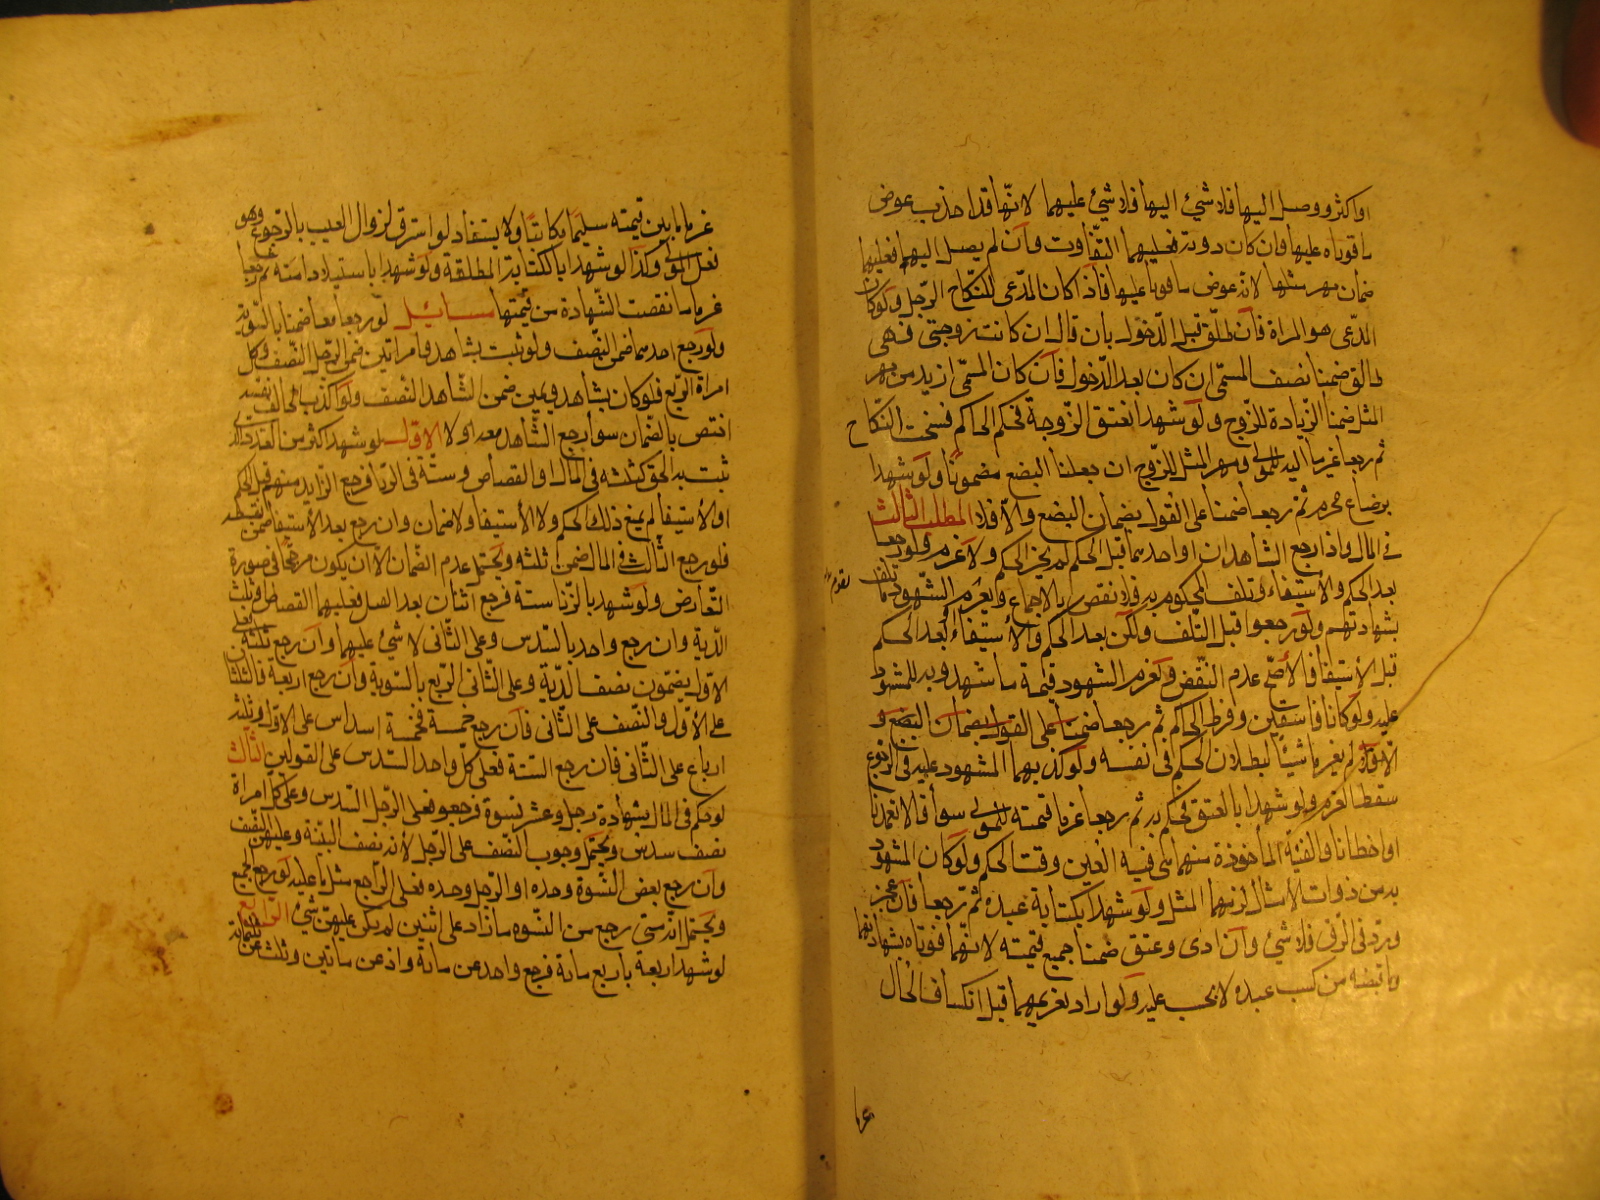 او اكثر ووصل اليها فلا شئ اليها فلا شئ عليهما لانها قد اخذت عوض
ما فوتاه عليها وان كان دونه فعليهما التفاوت وان لم يصل اليها فعليهما
ضمان مهر مثلها لانه عوض ما فوتا عليها فاذا كان المدعى للنكاح الرجل ولو كان
المدعى هو المراة فان طلق قبل الدخول بان قال ان كانت زوجتى فهى
طالق ضمنا نصف المسمى ان كان بعد الدخول فان كان المسمى ازيد من مهر
المثل ضمنا الزيادة للزوج ولو شهدا بعتق الزوجة فحكم الحاكم فسخت النكاح
ثم رجعا غرما اليه للمولى ومهر المثل للزوج ان جعلنا البضع مضمونا ولو شهدا
برضاع محرم ثم رجعا ضمنا على القول بضمان البضع والا فلا المطلب الثالث
فى المال واذا رجع الشاهدان او احدهما قبل الحكم لم يجز الحكم ولا غرم ولو رجعا
بعد الحكم والاستيفاء وتلف المحكوم به فلا نقض بالاجماع ويغرم الشهود ما تلف
بشهادتهم ولو رجعوا قبل التلف ولكن بعد الحكم والاستيفاء او بعد الحكم
قبل الاستيفا فالاصح عدم النقض ويغرم الشهود قيمة ما شهدو به للمشهود
عليه ولو كانا فاسقين وفرط الحاكم ثم رجعا ضمنا على القول بضمان البضع و
لم يغرما شيئا لبطلان الحكم فى نفسه ولو كذبهما المشهود عليه فى الرجوع
سقط الغرم ولو شهدا بالعتق فحكم به ثم رجعا غرما قيمته للمولى سوا قالا تعمدنا
او اخطانا والقيمة الماخوذة منهما هى قيمة العين وقت الحكم ولو كان المشهود
به من ذوات الامثال لزمهما المثل ولو شهدا بكتابة عبده ثم رجعا فان عجز
ورد فى الرق فلا شئ وان ادى وعتق ضمنا جميع قيمته لانهما فوتاه بشهادتهما
وما قبضه من كسب عبده لا يحسب عليه ولو اراد تغريمهما قبل انكشاف الحال
غرما
غرما ما بين قيمته سليما ومكاتبا ولا يستعاد لو استرق لزوال العيب بالرجوع وهو
فعل المولى وكذا لو شهدا بالكتابة المطلقة ولو شهدا باستيلاد امته ثم رجعا
غرما ما نقصت الشهادة من قيمتها مسائل لو رجعا معا ضمنا بالسوية
ولو رجع احدهما ضمن النصف ولو ثبت بشاهد وامراتين ضمن الرجل النصف وكل
امراة الربع فلو كان بشاهد ويمين ضمن الشاهد النصف ولو اكذب الحالف نفسه
اختص بالضمان سوا رجع الشاهد معه او لا الاول لو شهد اكثر من العدد الذى
ثبت به الحق كثلثه فى المال والقصاص وستة فى الزنا فرجع الزايد منهم قبل الحكم
او الاستيفا لم يمنع ذلك الحكم ولا الاستيفا ولا ضمان وان رجع بعد الاستيفا ضمن بقسطه
فلو رجع الثالث فى المال ضمن ثلثه ويحتمل عدم الضمان الا ان يكون مرجحا فى صورة
التعارض ولو شهد بالزنا ستة فرجع اثنان بعد القتل فعليهما القصاص او ثلث
الدية وان رجع واحد بالسدس وعلى الثانى لا شئ عليهما وان رجع ثلثة فعلى
الاول يضمنون نصف الدية وعلى الثانى الربع بالسوية وان رجع اربعة فالثلثان
على الاول والنصف على الثانى فان رجع خمسة فخمسة اسداس على الاول وثلثة
ارباع على الثانى فان رجع الستة فعلى كل واحد السدس على القولين الثالث
لو حكم فى المال بشهادة رجل وعشر نسوة فرجعو فعلى الرجل السدس وعلى كل امراة
نصف سدس ويحتمل وجوب النصف على الرجل لانه نصف البينة وعليهن النصف
وان رجع بعض النسوة وحده او الرجل وحده فعلى الراجع مثل ما عليه لو رجع الجميع
ويحتمل انه متى رجع من النسوة ما زاد على اثنين لم يكن عليهن شئ الرابع
لو شهد اربعة باربع ماىة فرجع واحد عن ماىة واخر عن ماىتين وثلث عن ثلثماىة